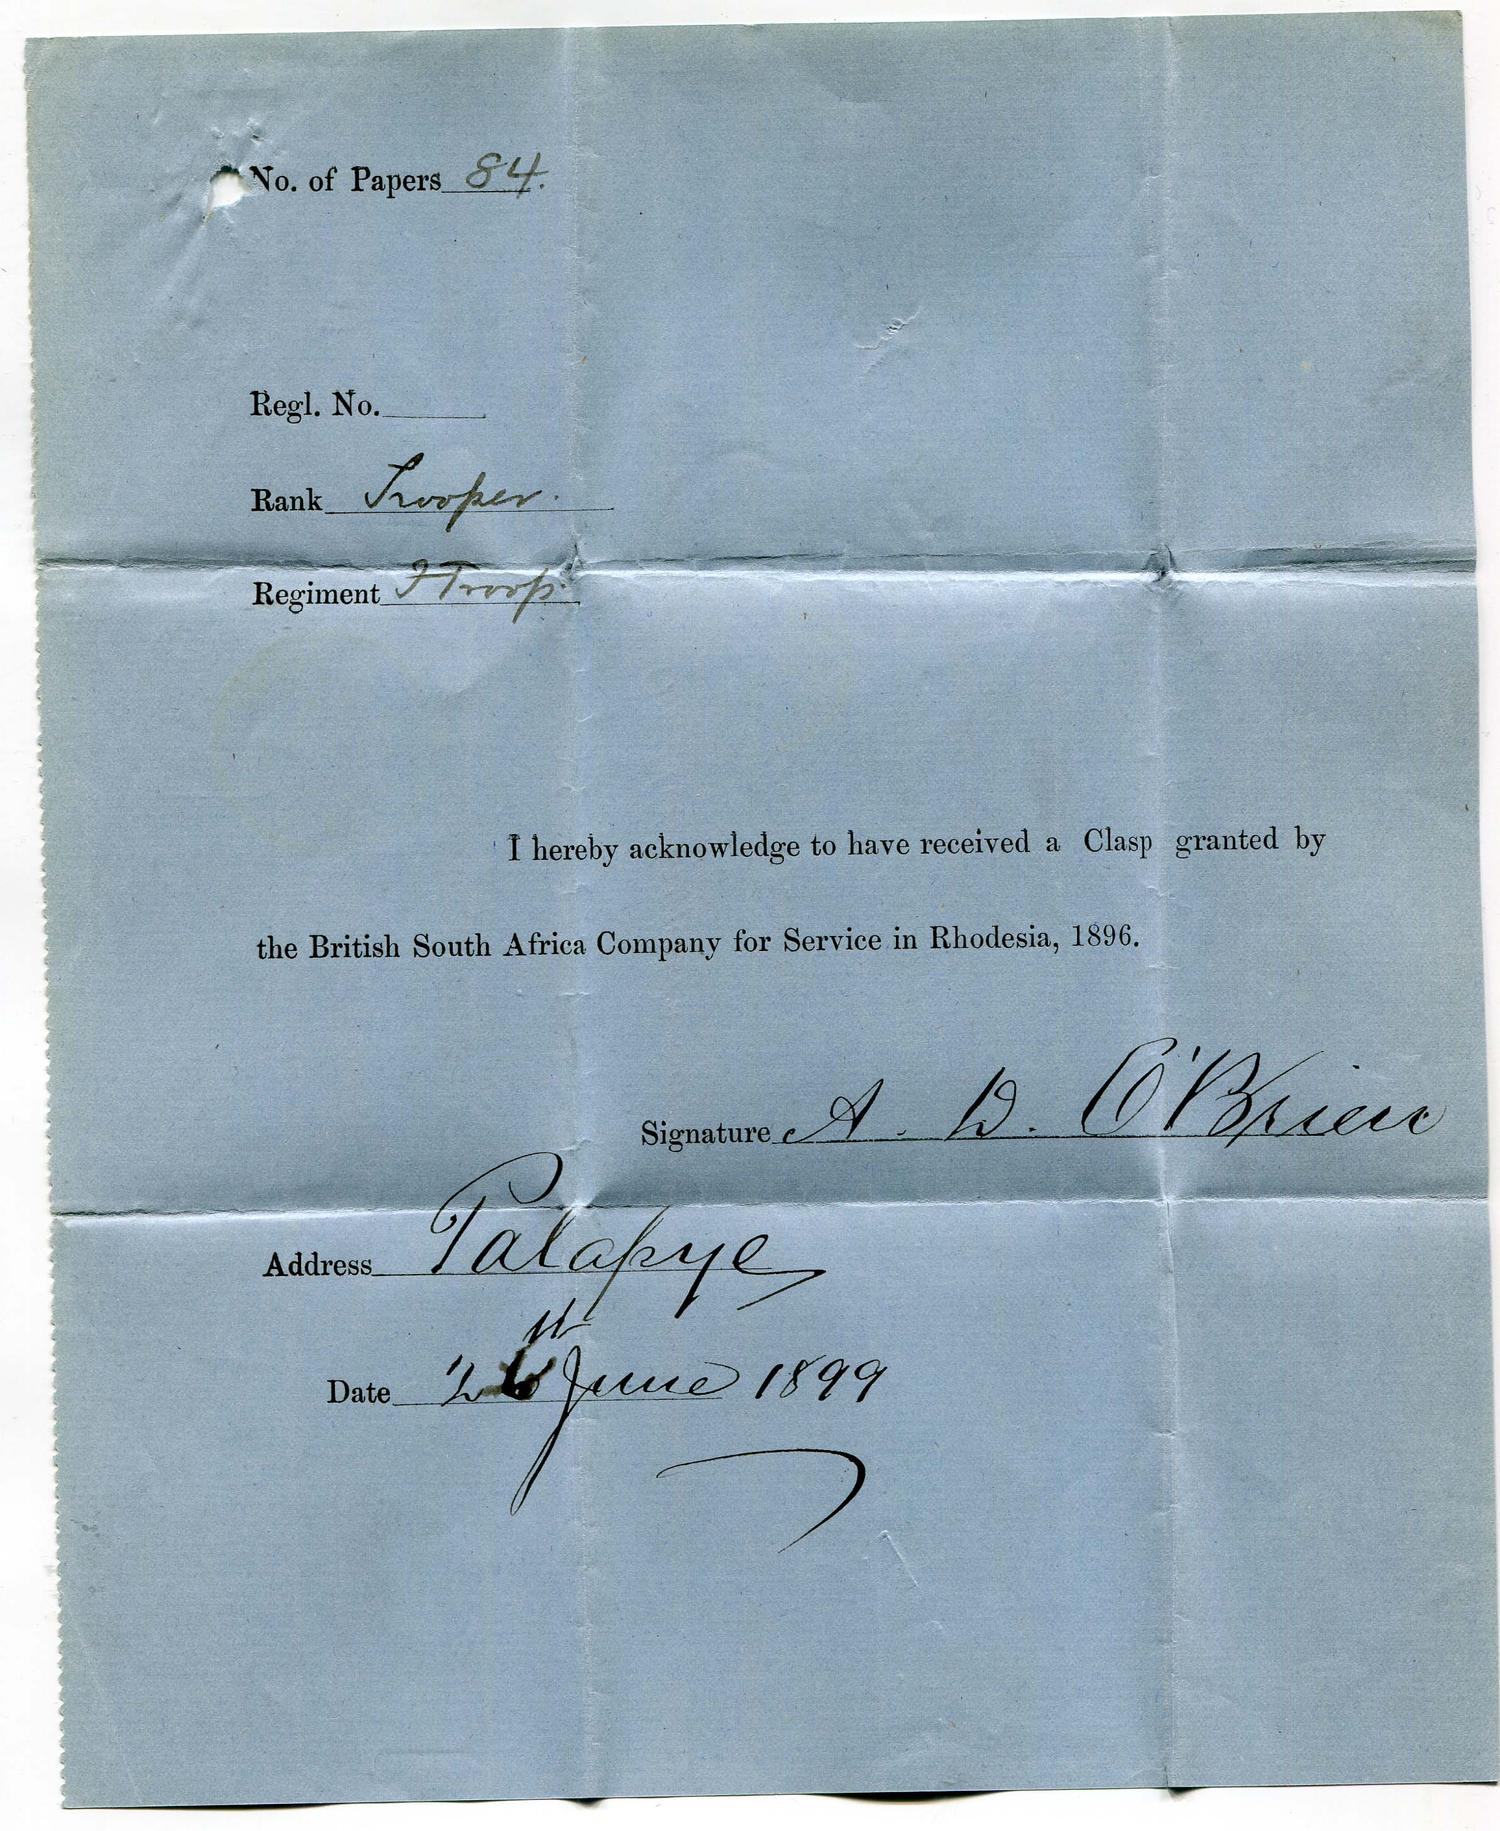 No. of Papers 84.
Regl. No.
Rank Trooper.
Regiment Troop.
I hereby acknowledge to have received a Clasp granted by
the British South Africa Company for Service in Rhodesia, 1896.
Signature A. D. O'Brien
Address Palapye
Date 26th June 1899